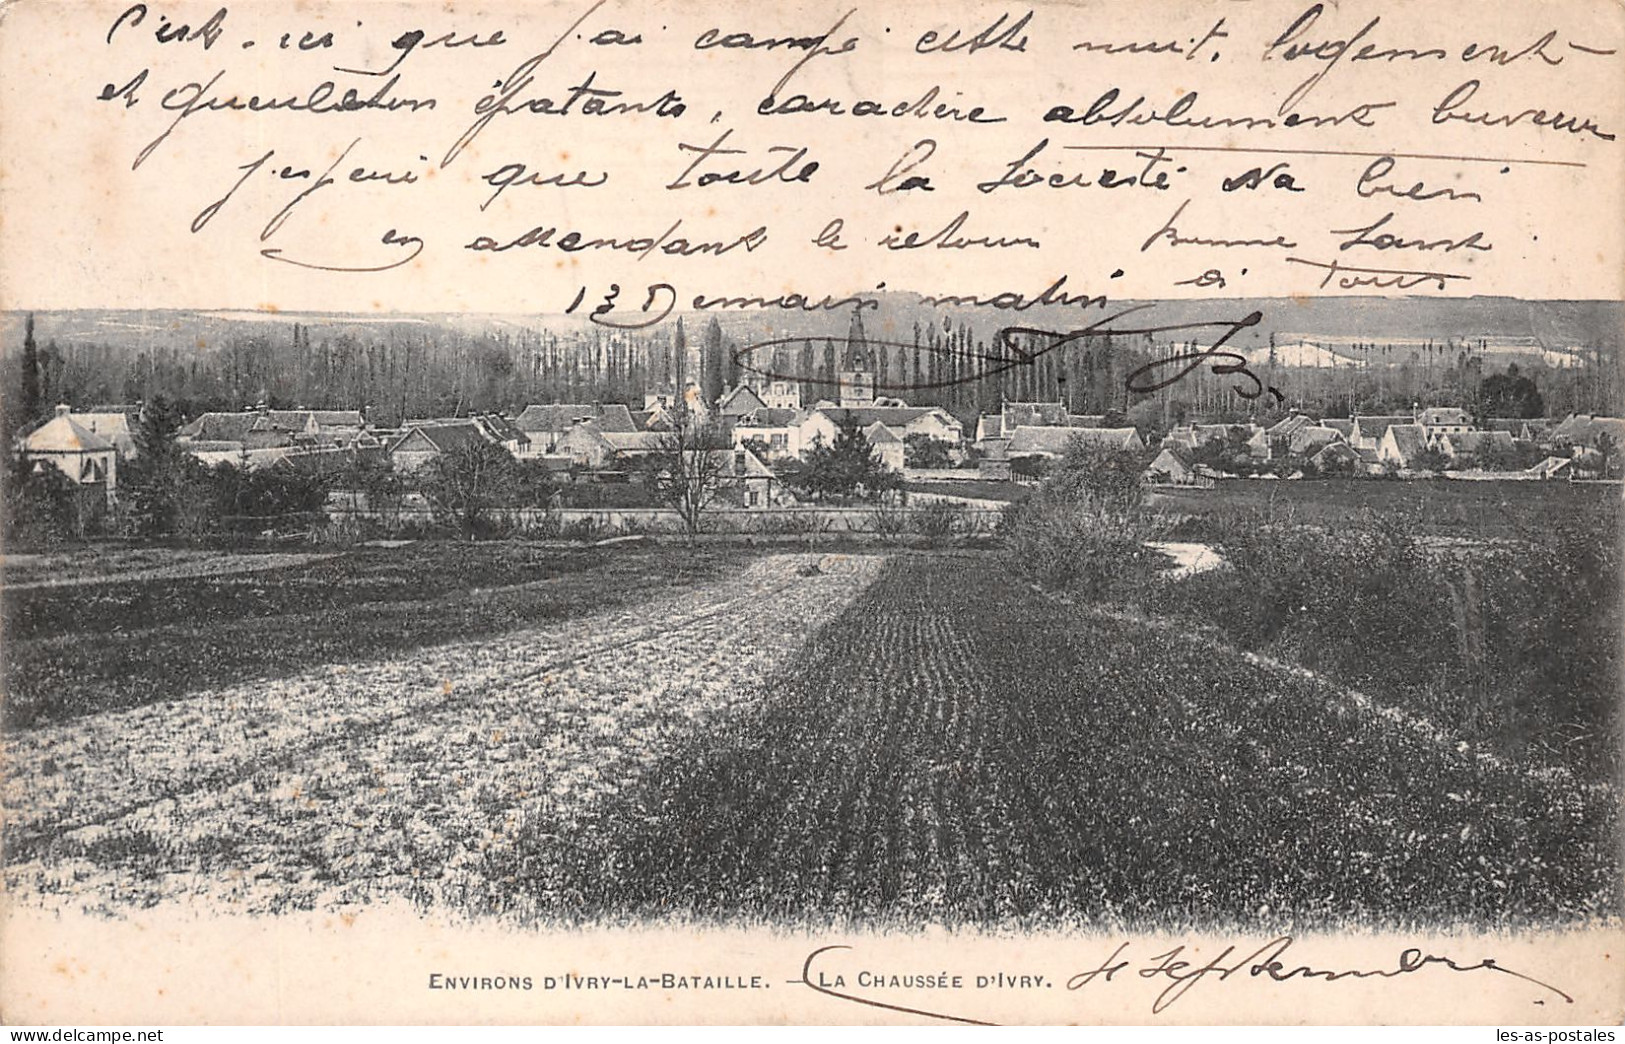 C'est ici que j'ai campé cette nuit, logement
et gueuleton épatants, caractère absolument buveur
j'espère que toute la Société va bien
en attendant le retour bonne santé
à tous
13 Demain matin
B.
ENVIRONS D'IVRY-LA-BATAILLE. — LA CHAUSSÉE D'IVRY.
4 Septembre
les-as-postales